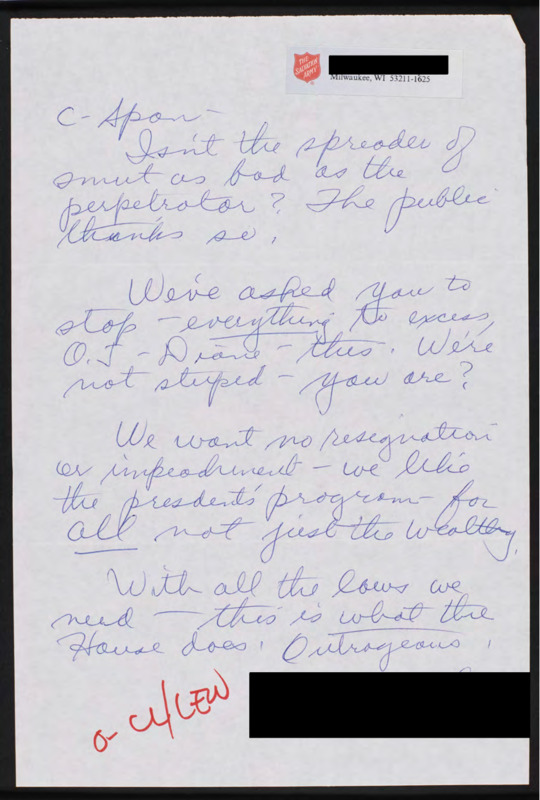 THE
SALVATION
ARMY
Milwaukee, WI 53211-1625
C-Span-
Isn't the spreader of
smut as bad as the
perpetrator? The public
thanks so.
We've asked you to
stop - everything to excess,
O.J - Diane - this. We're
not stupid - you are?
We want no resignation
or impeachment - we like
the president's program - for
all not just the wealthy.
With all the laws we
need - this is what the
House does! Outrageous!